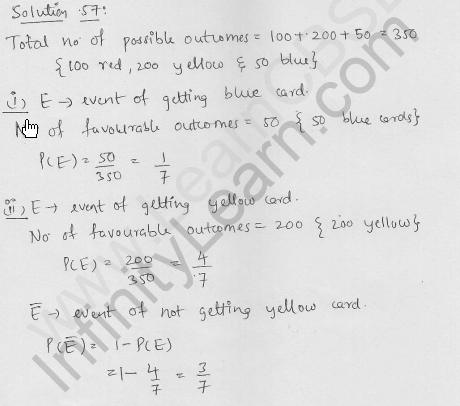 Solution 57:
Total no of possible outcomes = 100 + 200 + 50 = 350
{100 red, 200 yellow & 50 blue}
(i) E → event of getting blue card.
No of favourable outcomes = 50 {50 blue cards}
P(E) = 50/350 = 1/7
(ii) E → event of getting yellow card.
No of favourable outcomes = 200 {200 yellow}
P(E) = 200/350 = 4/7
E̅ → event of not getting yellow card.
P(E̅) = 1 - P(E)
= 1 - 4/7 = 3/7
InfinityLearn.com